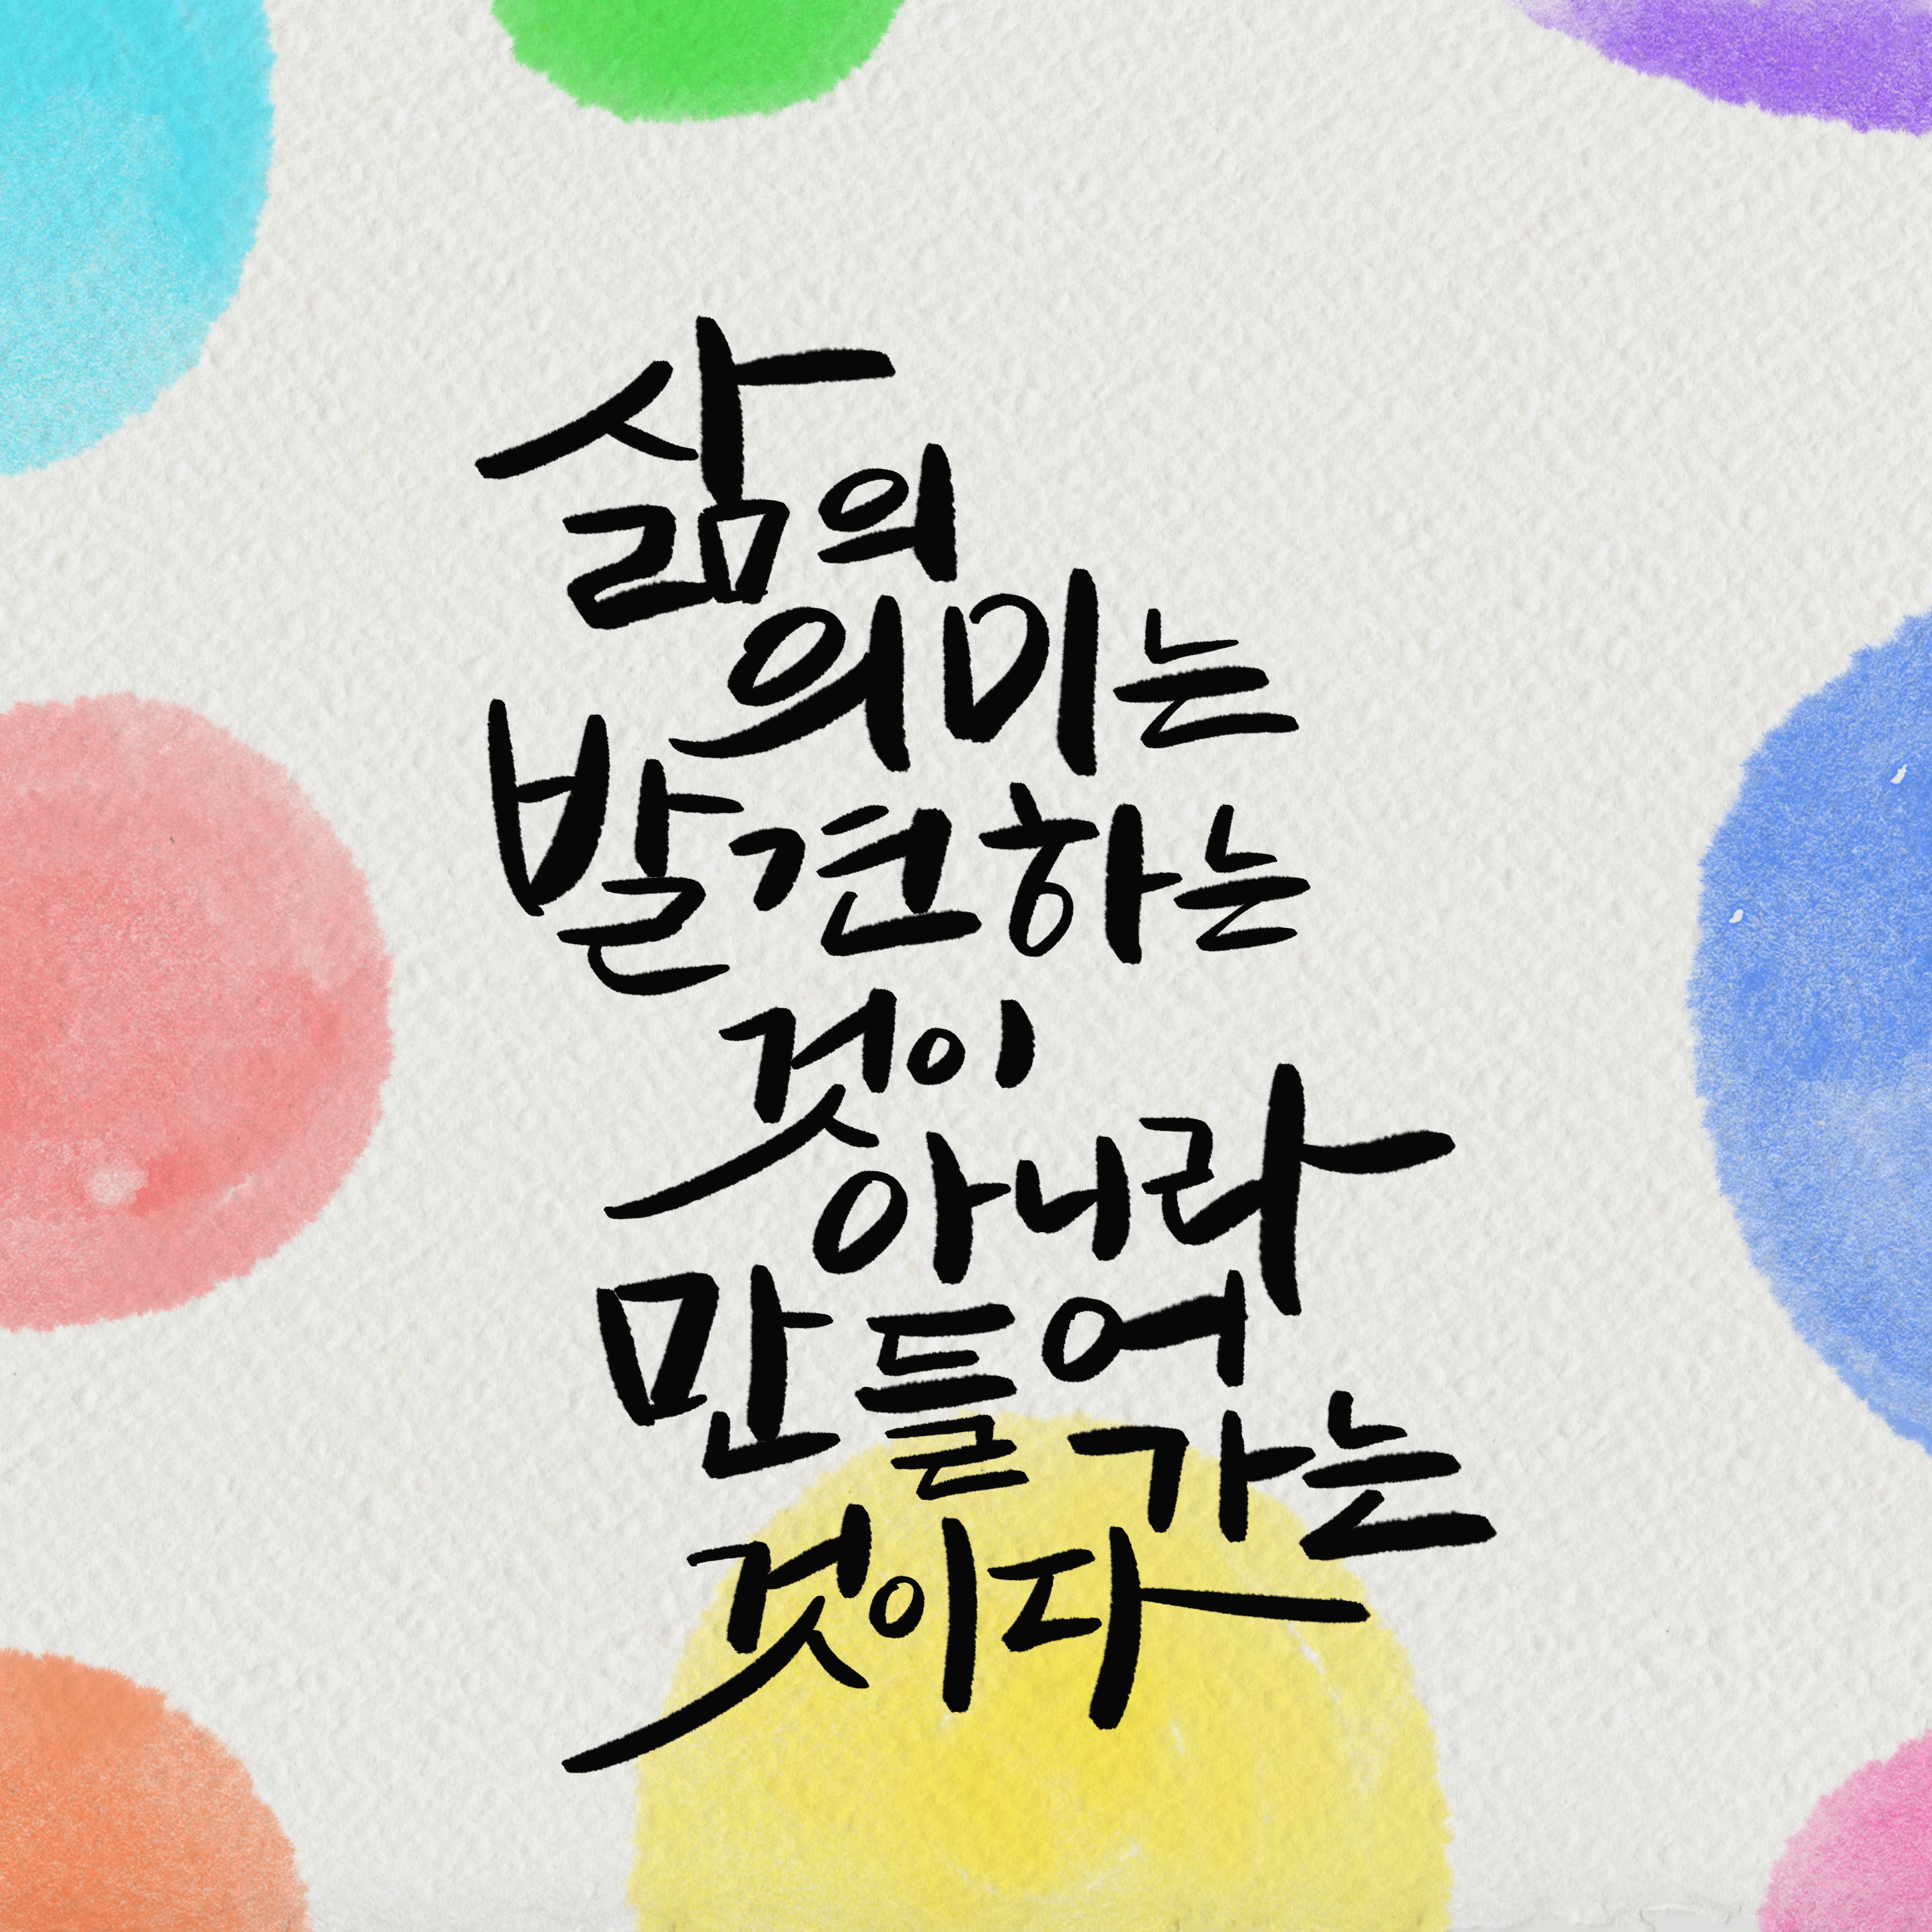 삶의
의미는
발견하는
것이
아니라
만들어
가는
것이다